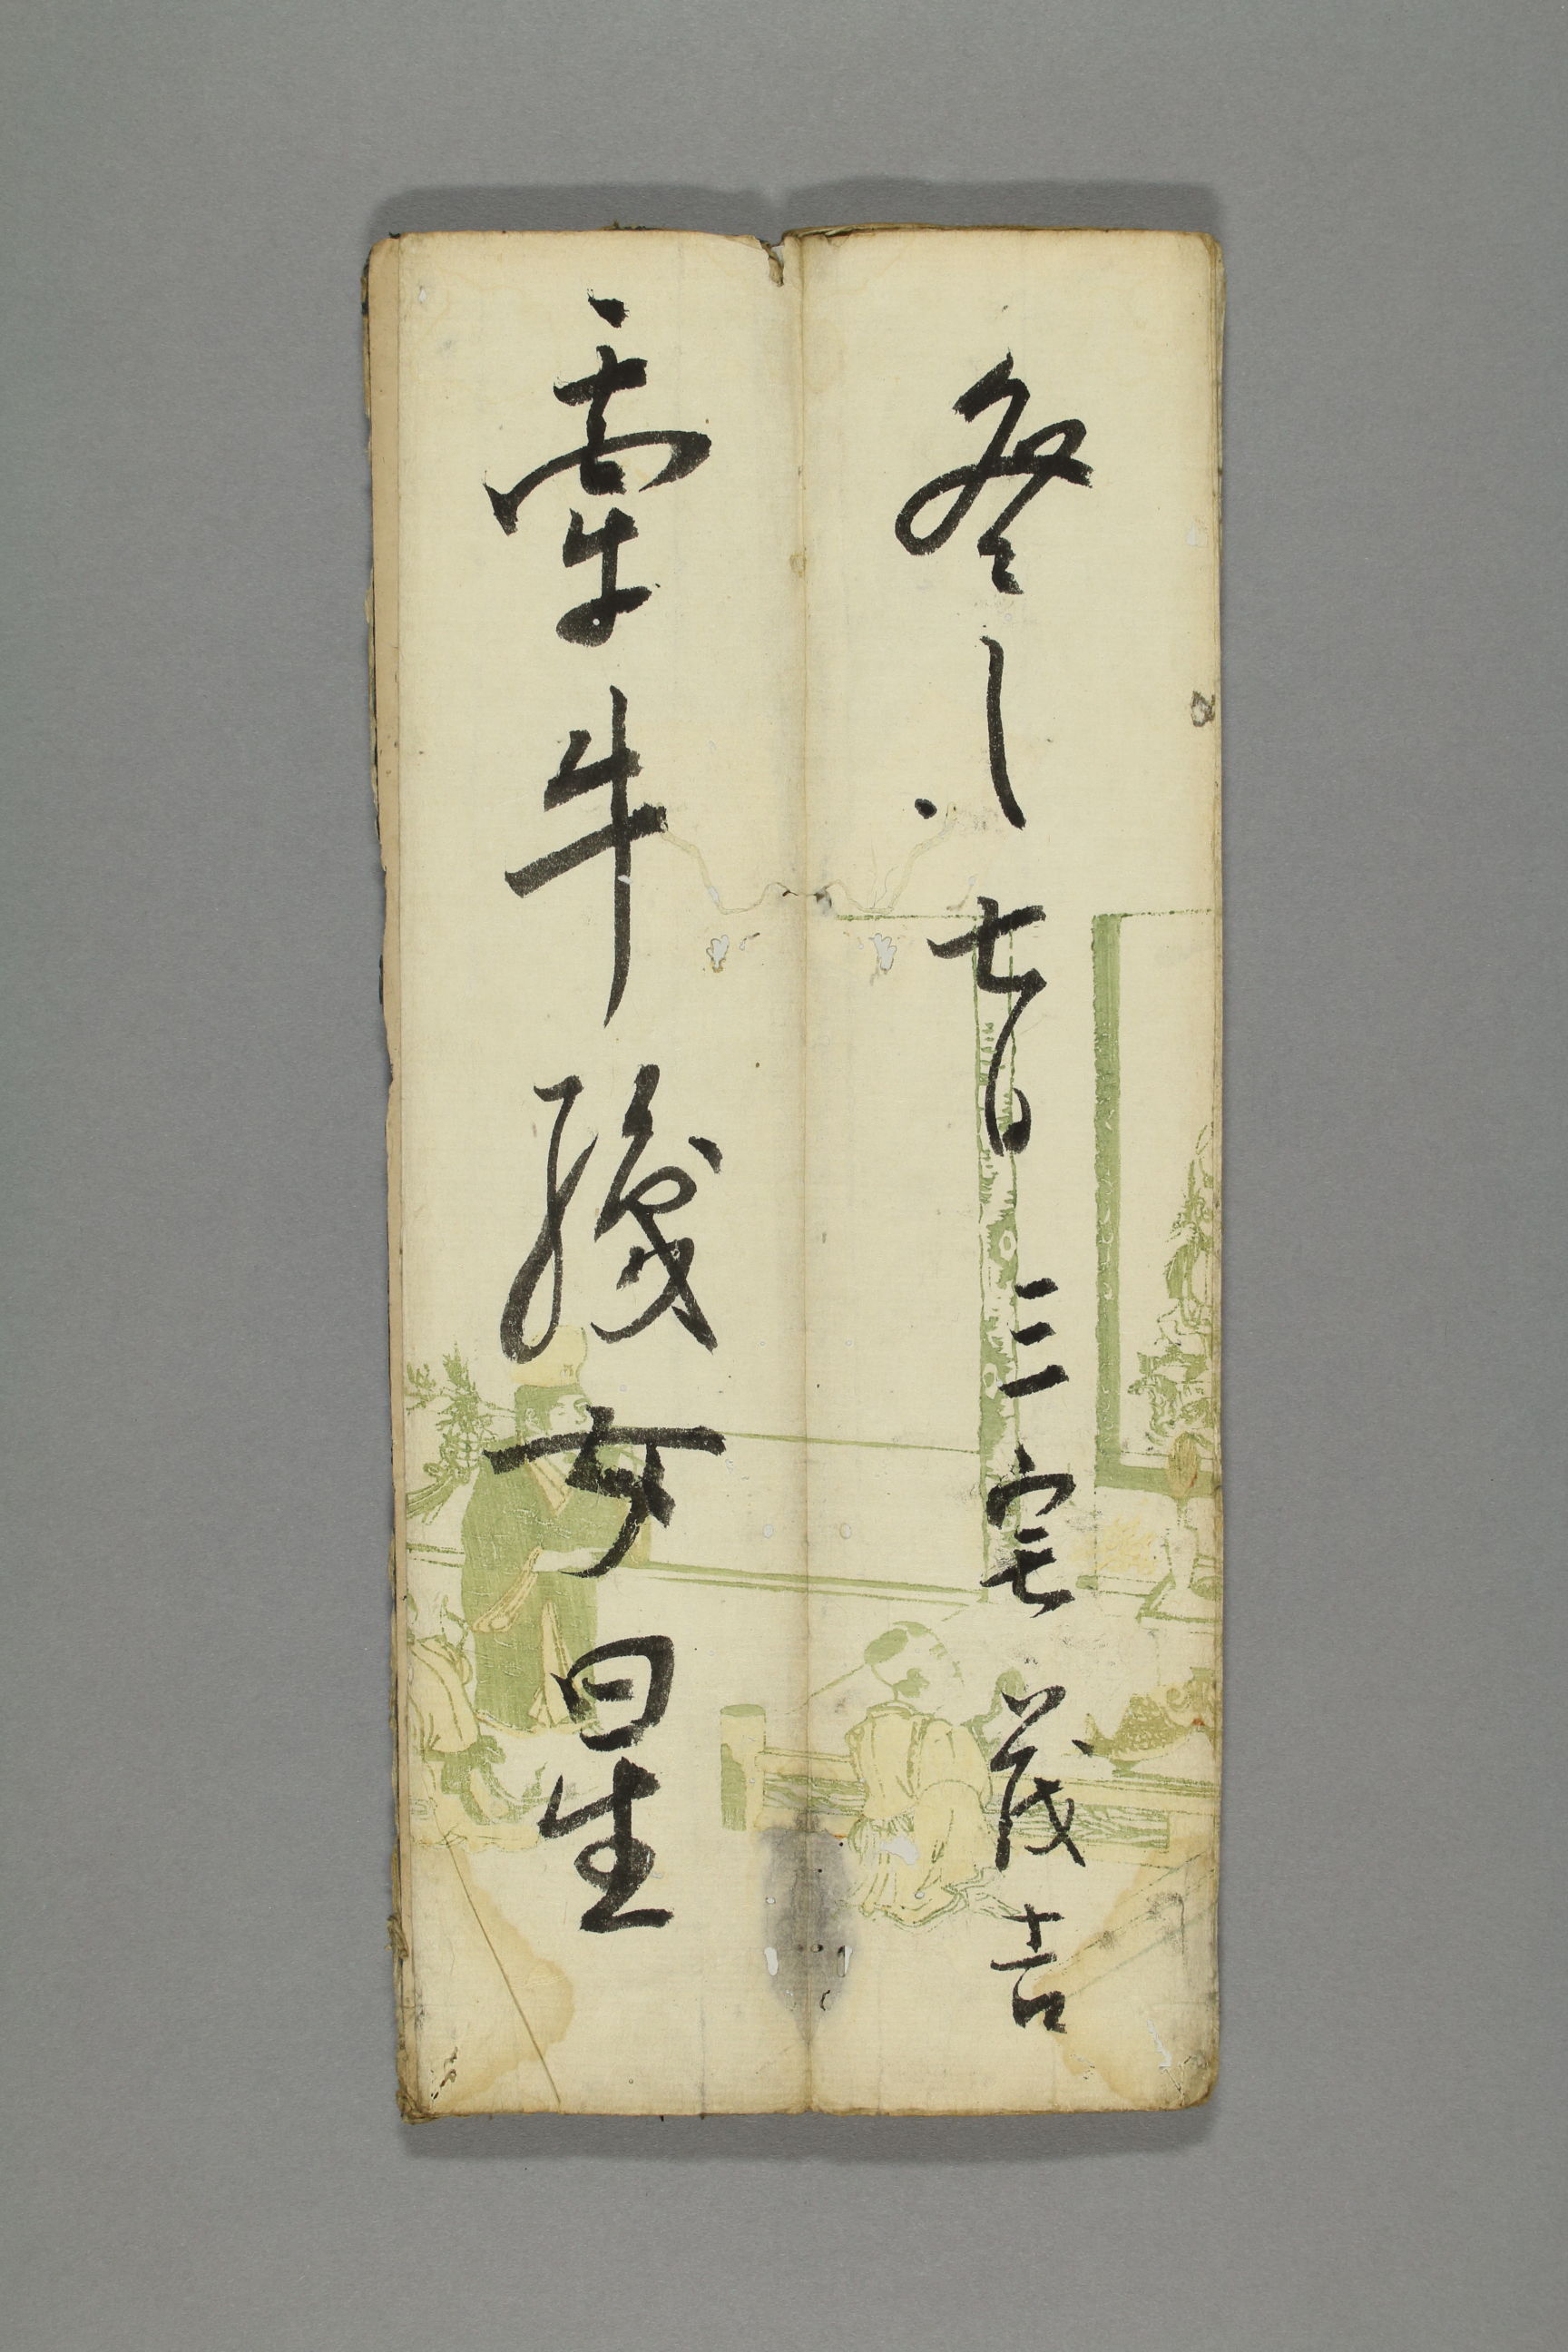 七日 三宅茂吉
牽牛織女星